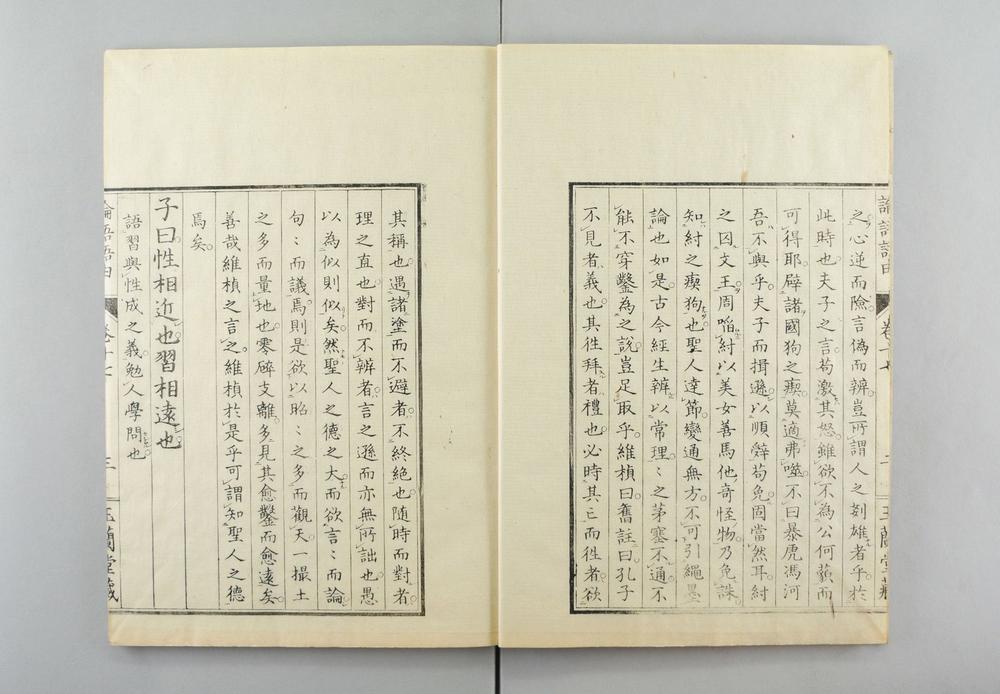 論語語由 卷十七 二 玉蘭堂藏
之心逆而險言偽而辨豈所謂人之刻雄者乎於
此時也夫子之言苟激其怒雖欲不為公何蘋而
可得耶辟諸國狗之瘈莫適弗噬不曰暴虎馮河
吾不與乎夫子而揖遜以順辭苟免固當然耳紂
之囚文王周啗紂以美女善馬他奇怪物乃免誅
知紂之瘈狗也聖人達節變通無方不可引繩墨
論也如是古今經生辨以常理〻之茅塞不通不
能不穿鑿為之說豈足取乎維楨曰舊註曰孔子
不見者義也其徃拜者禮也必時其亡而徃者欲
其稱也遇諸塗而不避者不終絶也隨時而對者
理之直也對而不辨者言之遜而亦無所詘也愚
以為似則似矣然聖人之德之大而欲言〻而論
句〻而議焉則是欲以昭〻之多而觀天一撮土
之多而量地也零碎支離多見其愈鑿而愈遠矣
善哉維楨之言之維楨於是乎可謂知聖人之德
焉矣
子曰性相近也習相遠也
語習與性成之義勉人學問也
論語語由 卷十七 三 玉蘭堂藏